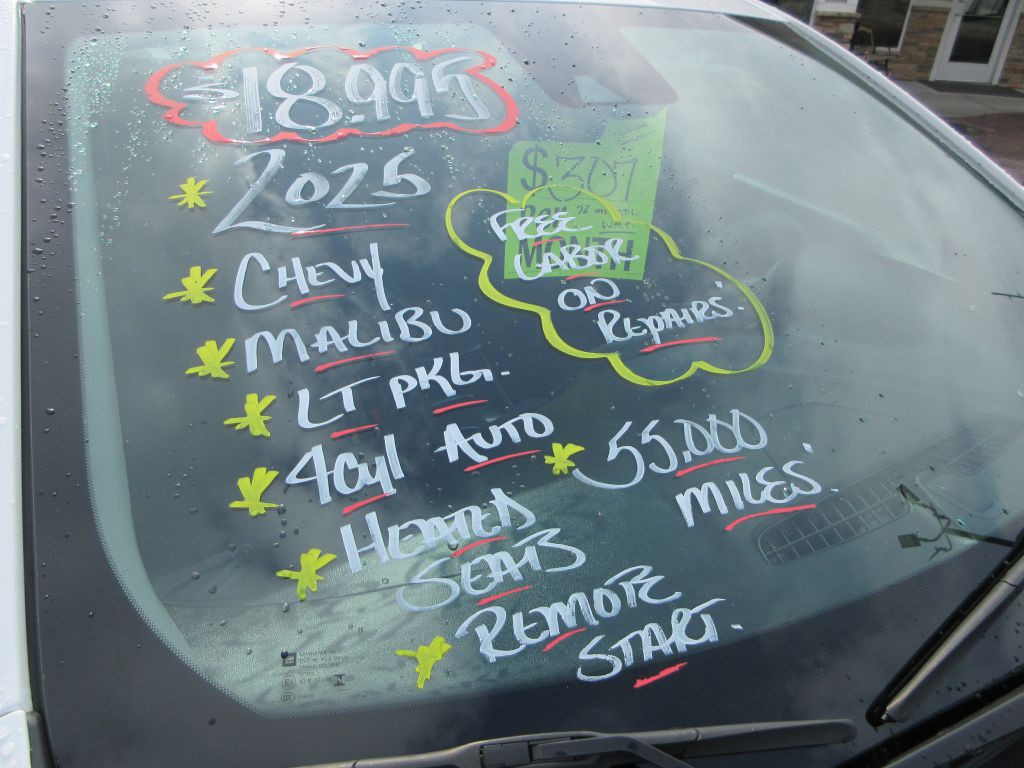 $18.995
2025
CHEVY
MALIBU
LT PKG.
4Cyl AUTO
HEATED
SEATS
REMOTE
START.
$307
72 months
MONTH
FREE
LABOR
ON
REPAIRS.
55.000
MILES.